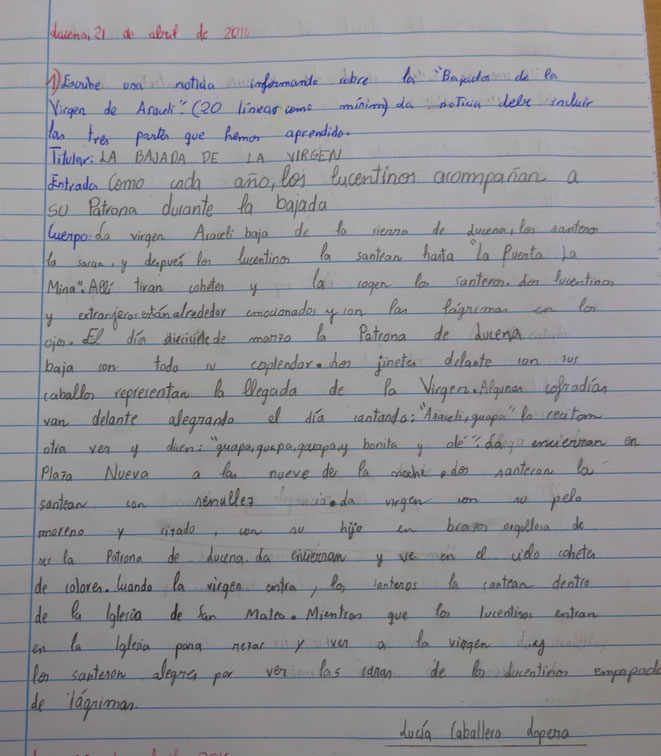 Lucena, 21 de abril de 201
1) Escribe una noticia informando sobre la "Bajada de la
Virgen de Araceli". (20 líneas como mínimo) La noticia debe incluir
las tres partes que hemos aprendido.
Titular: LA BAJADA DE LA VIRGEN
Entrada Como cada año, los lucentinos acompañan a
su Patrona durante la bajada
Cuerpo: La virgen Araceli baja de la sierra de Lucena, los santeros
la sacan, y después los lucentinos la santean hasta "La Puerta La
Mina". Allí tiran cohetes y la cogen los santeros. Los lucentinos
y extranjeros están alrededor emocionados y con las lágrimas en los
ojos. El día diecisiete de marzo la Patrona de Lucena
baja con todo su esplendor. Los jinetes delante con sus
caballos representan la llegada de la Virgen. Algunas cofradías
van delante alegrando el día cantando: "Araceli, guapa" la recitan
otra vez y dicen: "guapa, guapa, guapa, y bonita y olé". La encierran en
Plaza Nueva a las nueve de la noche. Los santeros la
santean con sencillez. La virgen con su pelo
moreno y rizado, con su hijo en brazos orgullosa de
ser la Patrona de Lucena. La encierran y ve en el cielo cohetes
de colores. Cuando la virgen entra, los santeros la santean dentro
de la Iglesia de San Mateo. Mientras que los lucentinos entran
en la Iglesia para rezar y ver a la virgen y
los santeros alegres por ver las caras de los Lucentinos empapada
de lágrimas.
Lucía Caballero Lopera